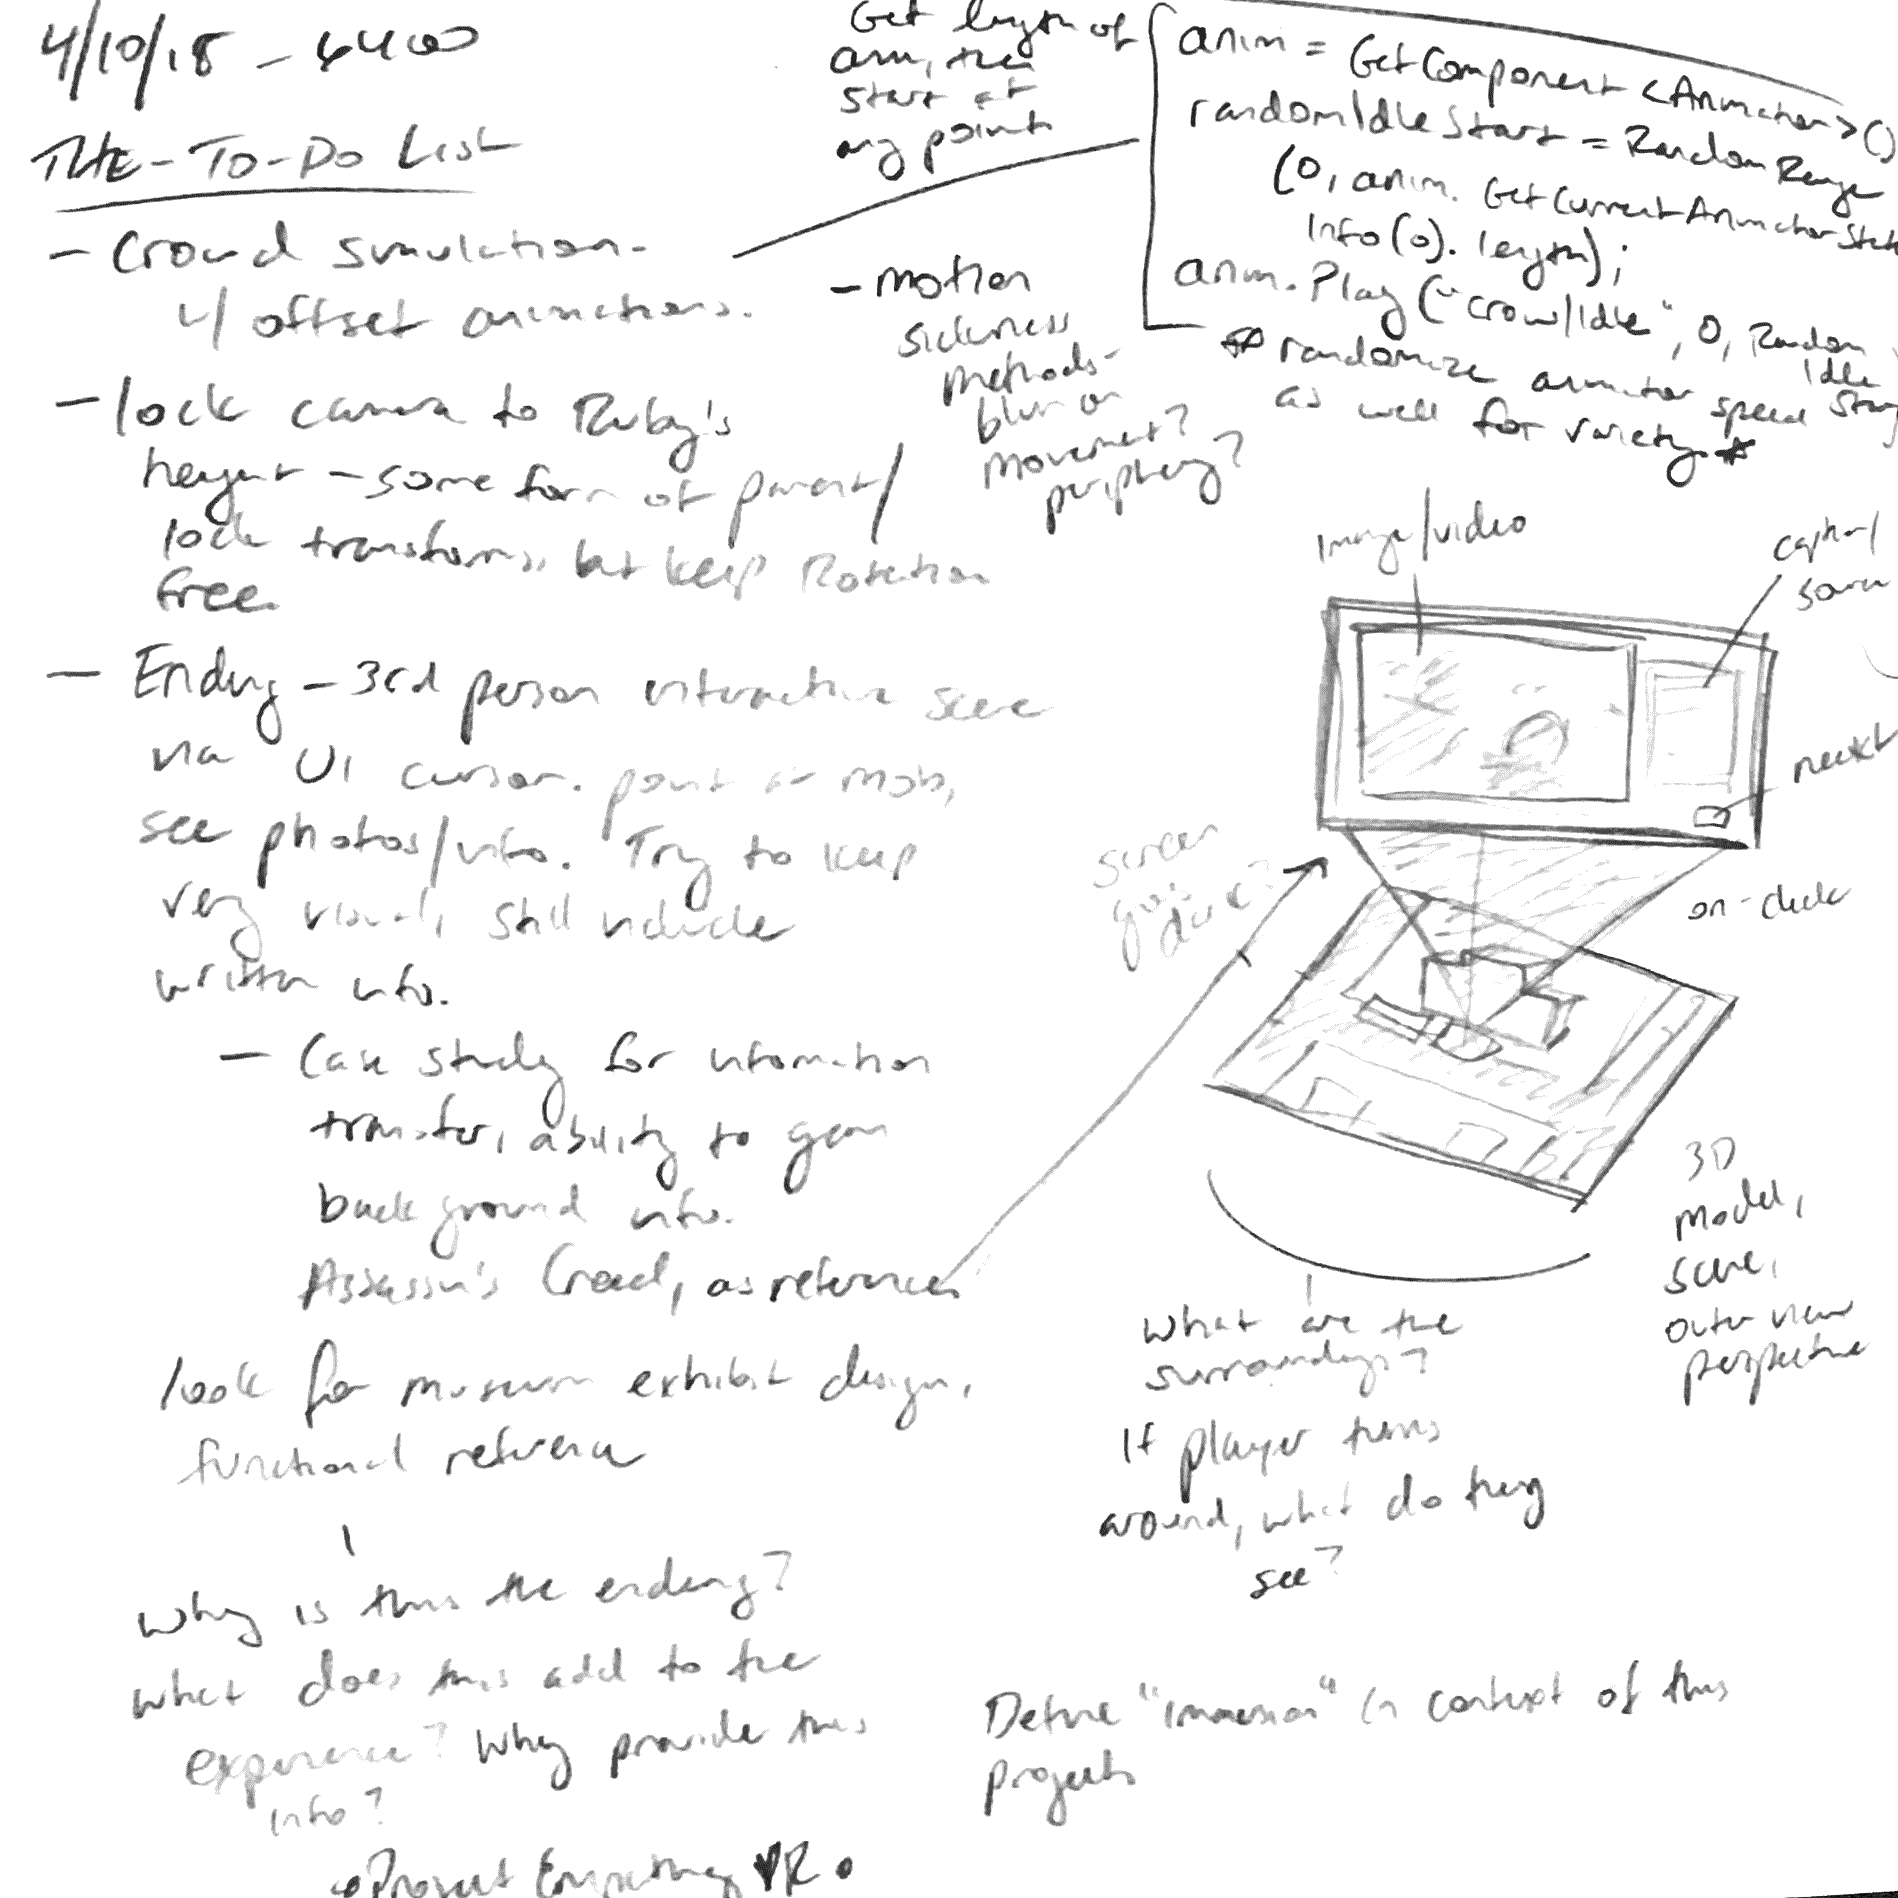 4/10/18 - 6400
THE-TO-DO LIST
- Crowd simulation-
w/ offset animations.
- lock camera to Ruby's
height - some form of parent/
lock transforms, but keep Rotation
free.
- Ending - 3rd person interactive scene
via UI cursor. point at mob,
see photos/info. Try to keep
very visual, still include
written info.
- Case study for information
transfer, ability to gain
background info.
Assassin's Creed, as reference
look for museum exhibit design,
functional reference
Why is this the ending?
What does this add to the
experience? Why provide this
info?
Project Empathy VR
Get length of
anim, then
start at
any point
anim = GetComponent <Animator> ()
randomIdleStart = RandomRange
(0, anim. GetCurrentAnimatorState
Info(0). length);
anim.Play ("crowdIdle", 0, Random
Idle
Start
* randomize animator speed
as well for variety. *
- motion
sickness
methods-
blur on
movement?
periphery?
image/video
caption/
source
next
on-click
screen
goes
dark?
3D
model,
scene,
outer view
perspective
What are the
surroundings?
If player turns
around, what do they
see?
Define "immersion" in context of this
project